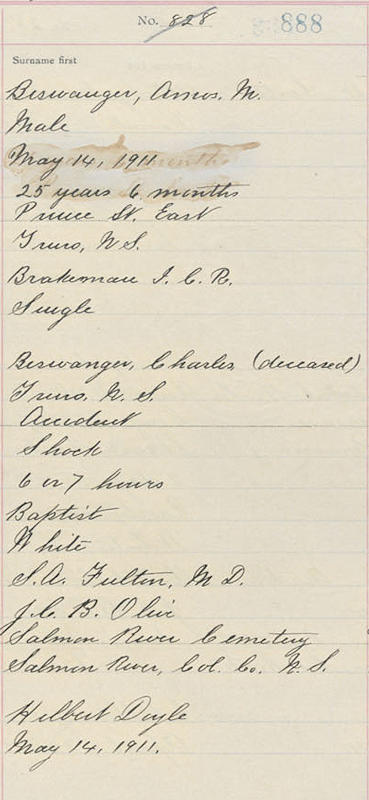 No. 828 888
Surname first
Beswanger, Amos. M.
Male
May 14, 1911
25 years 6 months
Prince St. East
Truro, N.S.
Brakeman I. C. R.
Single
Beswanger, Charles (deceased)
Truro, N. S.
Accident
Shock
6 or 7 hours
Baptist
White
S. A. Fulton, M D.
J. C. B. Olive
Salmon River Cemetery
Salmon River, Col. Co. N. S.
Hilbert Doyle
May 14, 1911.